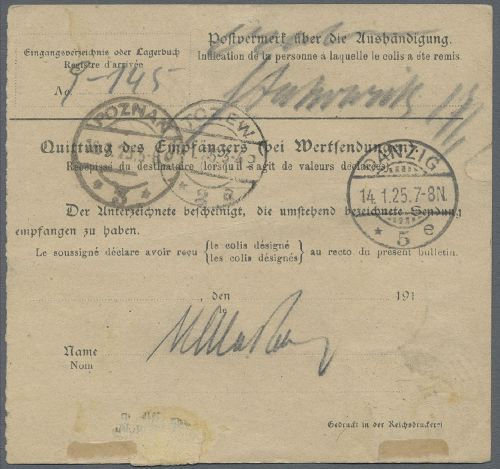 Eingangsverzeichnis oder Lagerbuch
Registre d'arrivée
No 9-145
Postvermerk über die Aushändigung.
Indication de la personne à laquelle le colis a été remis
POZNAŃ
3
TCZEW
2 a
Quittung des Empfängers bei Wertsendungen.
Récépissé du destinataire (lorsqu'il s'agit de valeurs déclarées).
DANZIG
14.1.25.7-8N.
* 5 e
Der Unterzeichnete bescheinigt, die umstehend bezeichnete Sendung
empfangen zu haben.
Le soussigné déclare avoir reçu {le colis désigné
les colis désignés} au recto du présent bulletin.
, den 191
le
Name
Nom
Gedruckt in der Reichsdruckerei